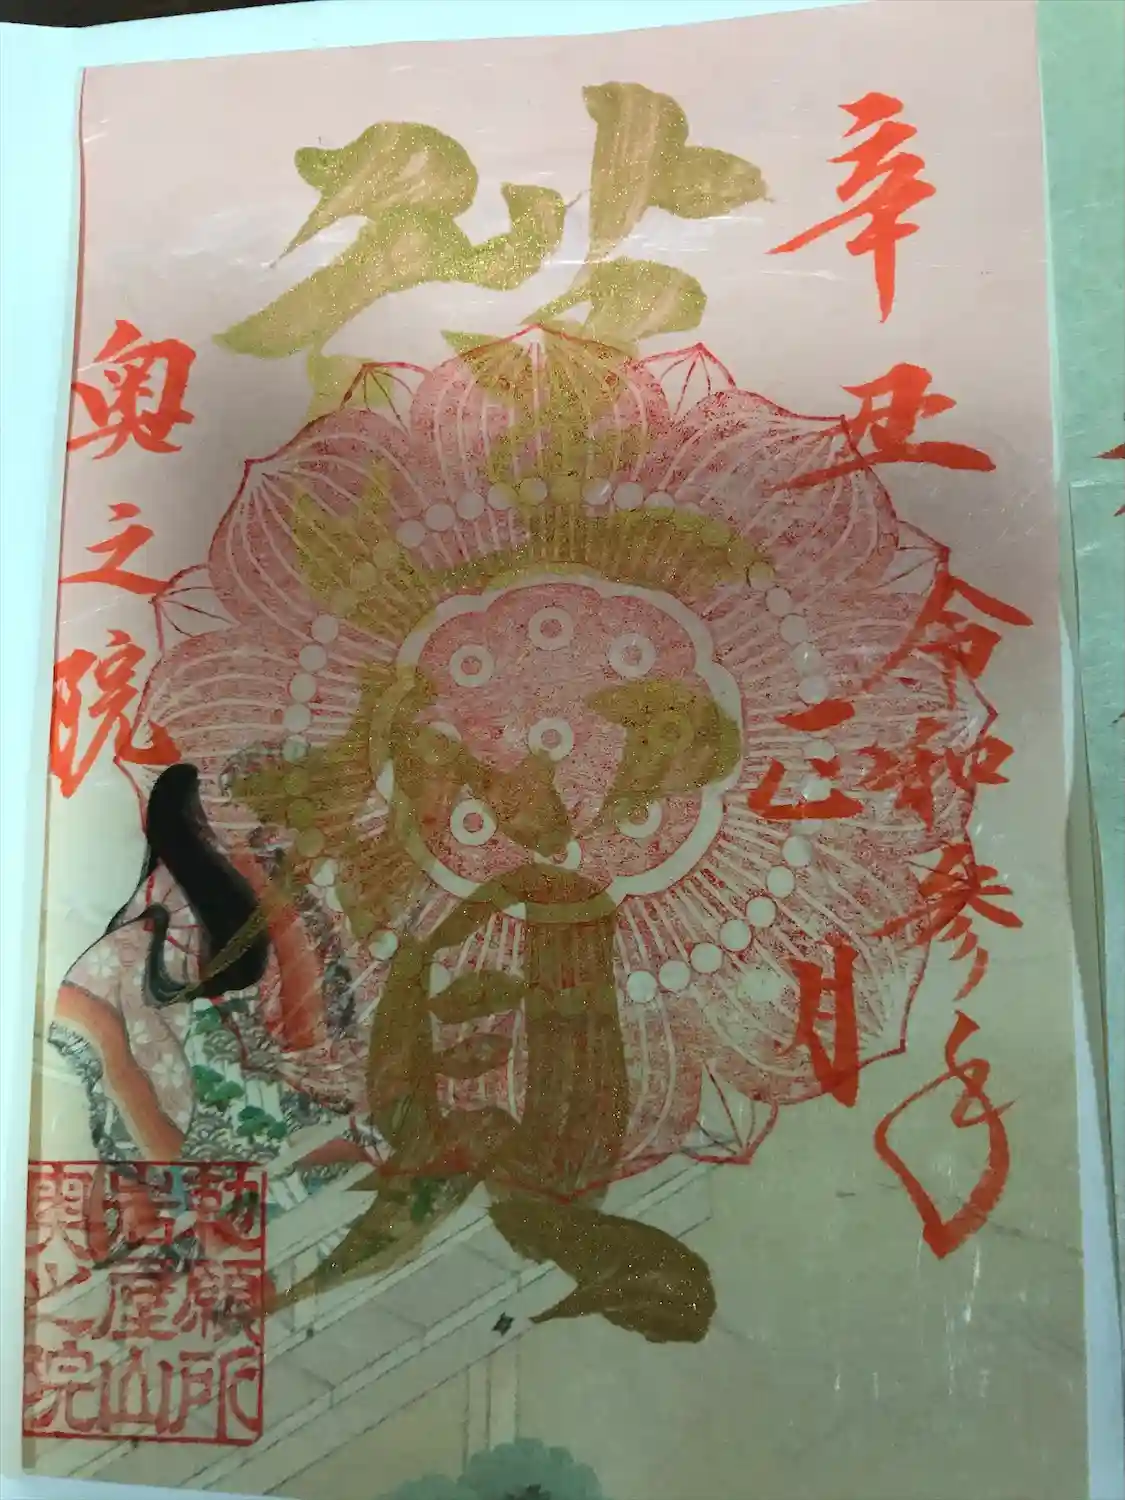 辛丑 令和参年
正月
賀
奥之院
勅願所
岩屋山
奥之院